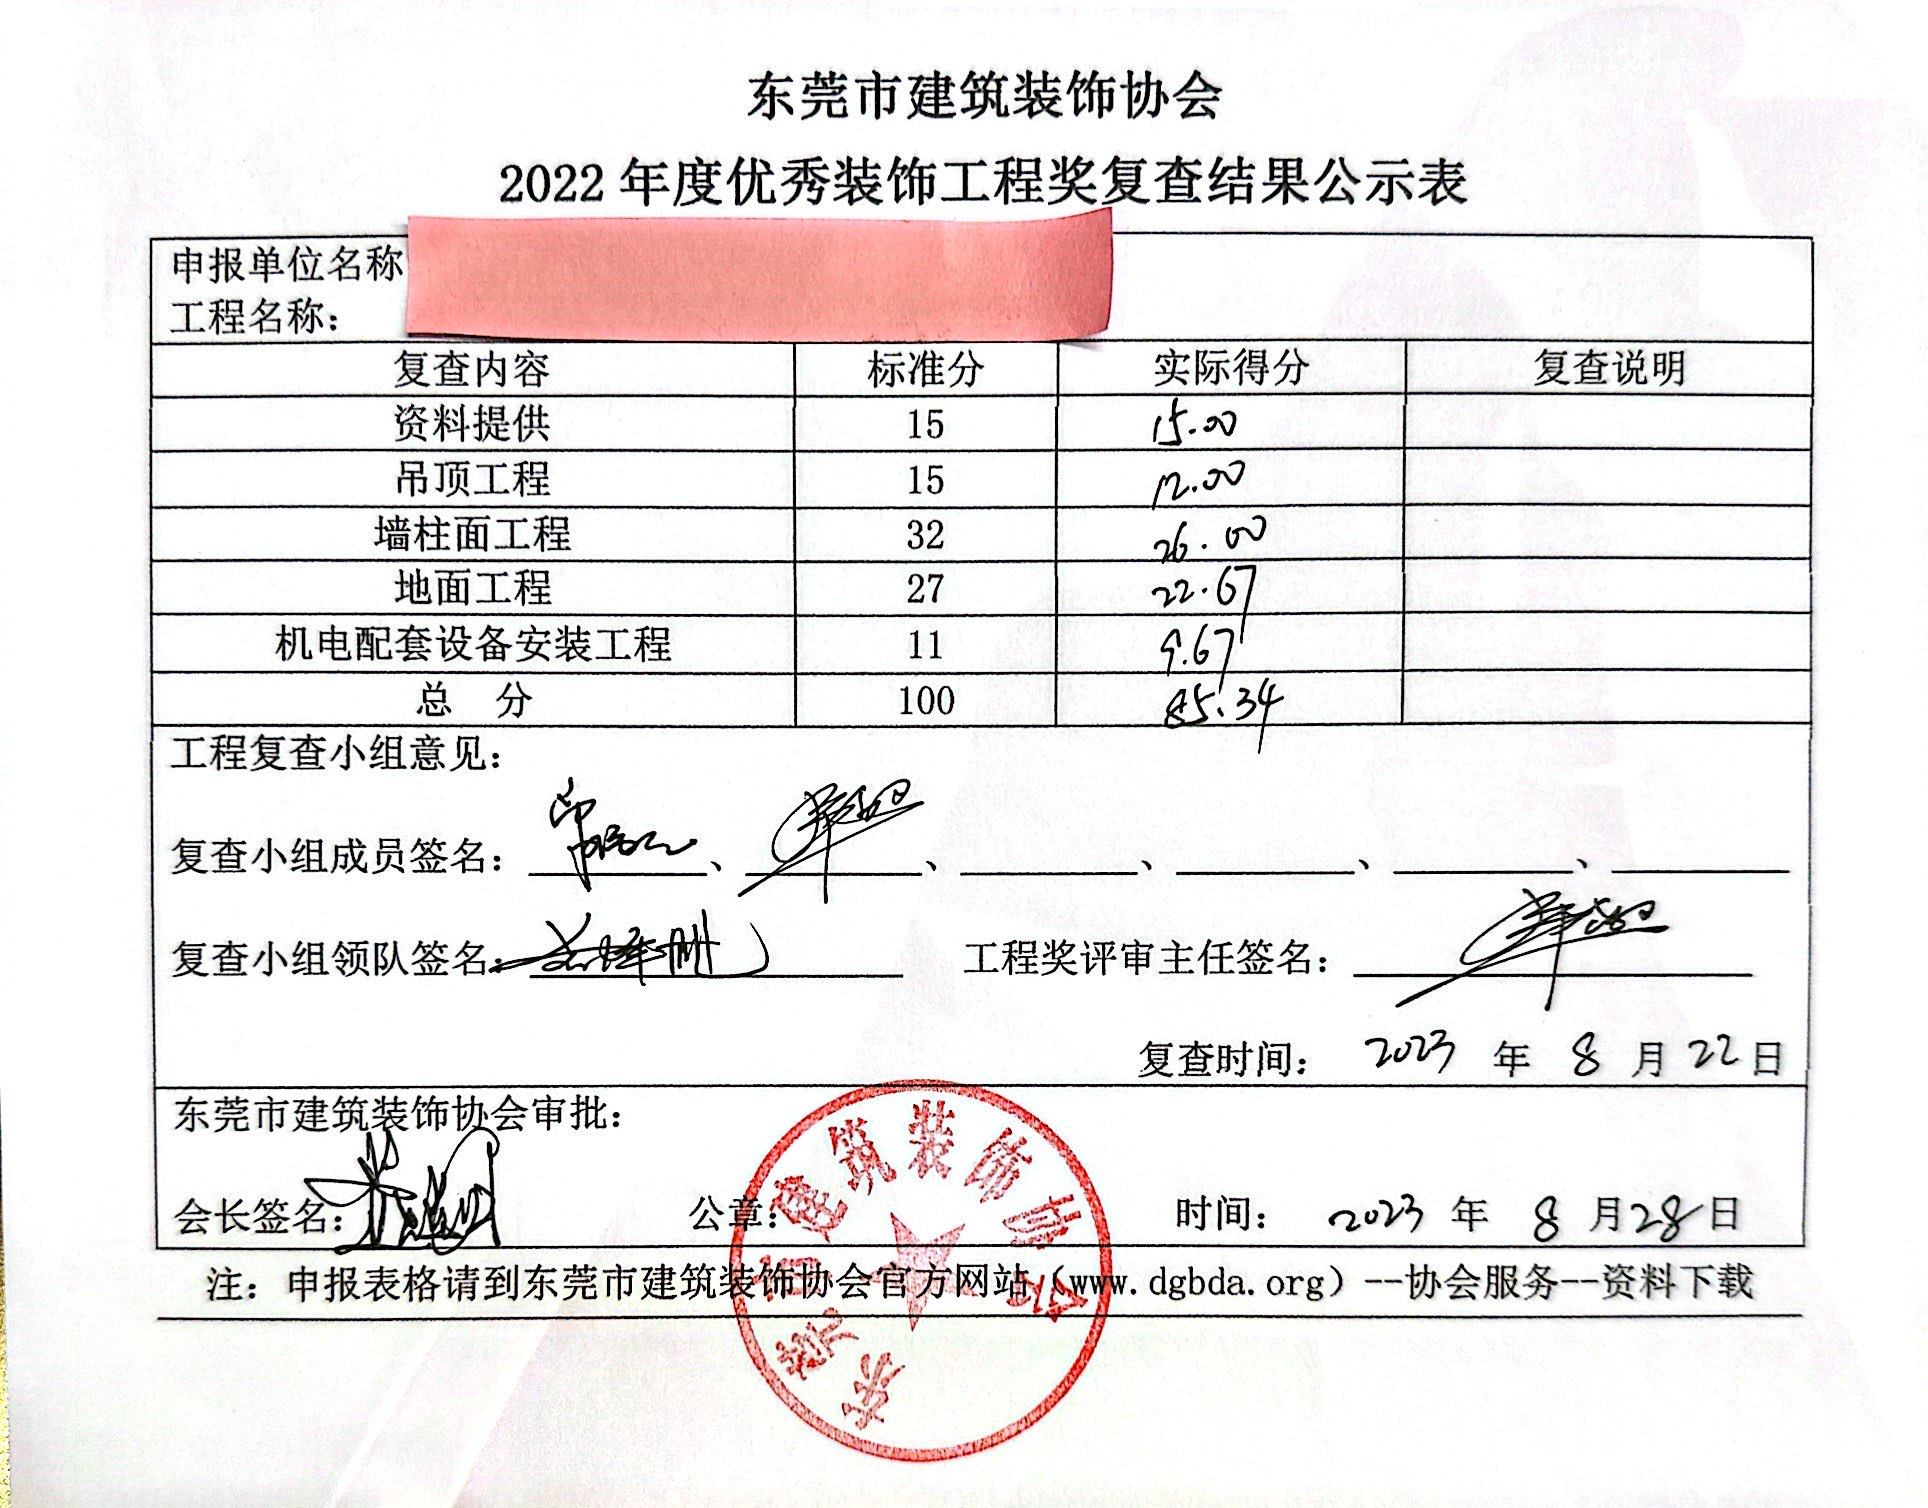 东莞市建筑装饰协会
2022 年度优秀装饰工程奖复查结果公示表
申报单位名称
工程名称：
复查内容 标准分 实际得分 复查说明
资料提供 15 15.00
吊顶工程 15 12.00
墙柱面工程 32 26.00
地面工程 27 22.67
机电配套设备安装工程 11 9.67
总 分 100 85.34
工程复查小组意见：
复查小组成员签名：、、、、、
复查小组领队签名： 工程奖评审主任签名：
复查时间： 2023 年 8 月 22 日
东莞市建筑装饰协会审批：
会长签名： 公章： 时间： 2023 年 8 月 28 日
东莞市建筑装饰协会
注：申报表格请到东莞市建筑装饰协会官方网站（www.dgbda.org）--协会服务--资料下载